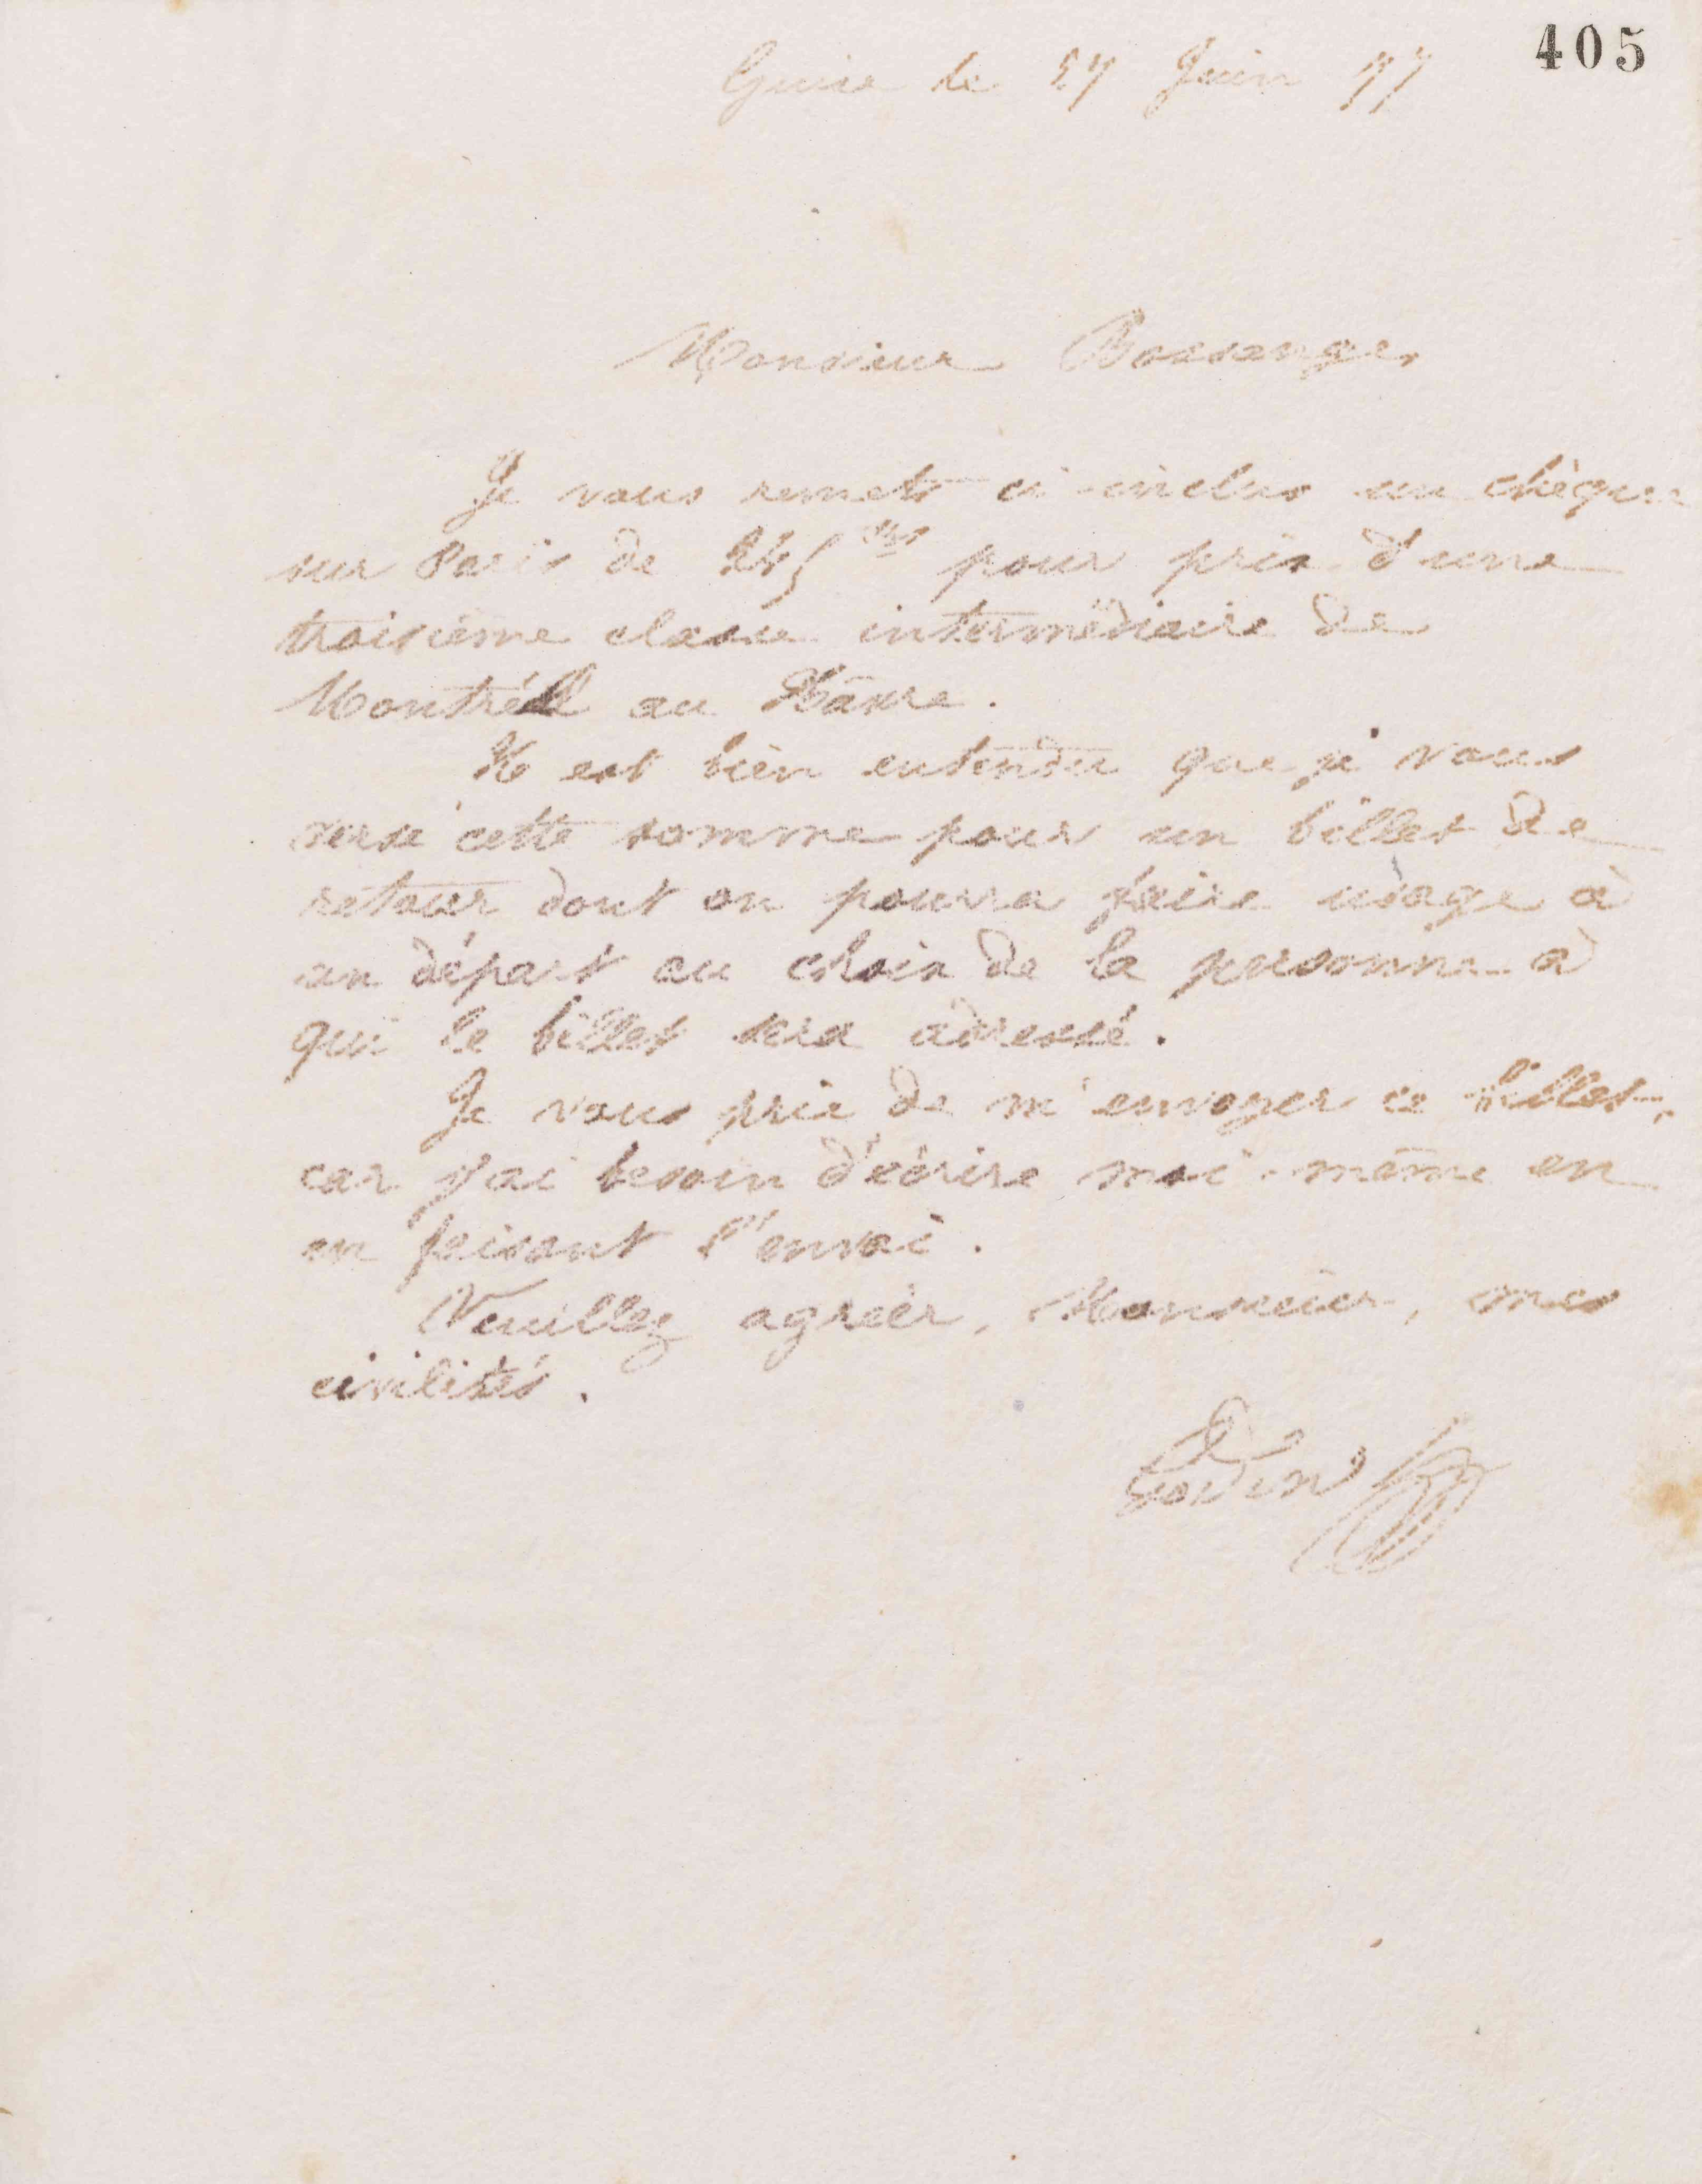 405
Guise le 27 Juin 77
Monsieur Bossange
Je vous remets ci-inclus un chèque
sur Paris de 245 frs pour prix d'une
troisième classe intermédiaire de
Montréal au Hâvre.
Il est bien entendu que je vous
verse cette somme pour un billet de
retour dont on pourra faire usage à
un départ au choix de la personne à
qui le billet sera adressé.
Je vous prie de m'envoyer ce billet,
car j'ai besoin d'écrire moi-même en
en faisant l'envoi.
Veuillez agréer, Monsieur, mes
civilités.
Godin